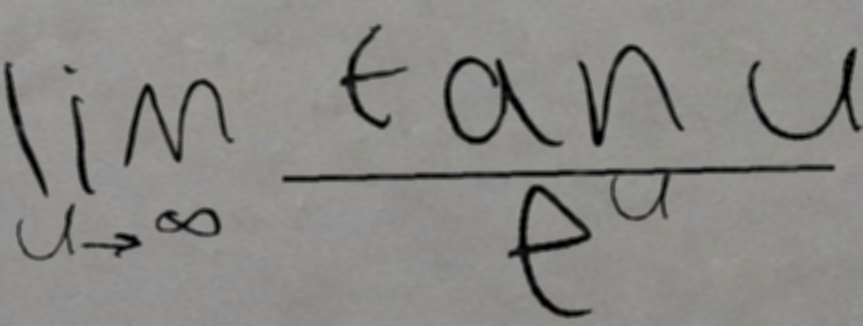 \lim_{u \to \infty} \frac{\tan u}{e^u}